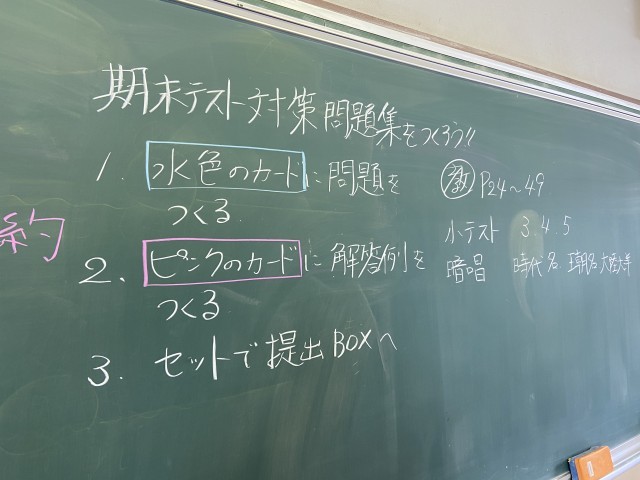 期末テスト対策問題集をつくろう!!
1. 水色のカードに問題を
つくる.
2. ピンクのカードに解答例を
つくる
3. セットで提出BOXへ
教 P24〜49
小テスト 3.4.5
暗唱 時代名.
約